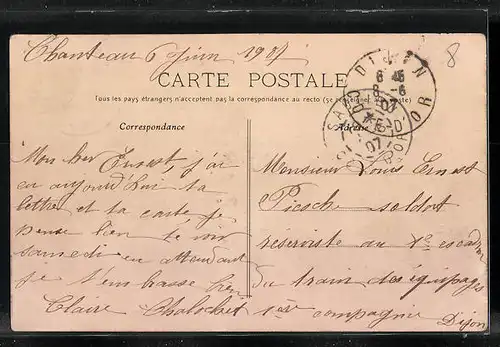 Chanteau 6 Juin 1907
8
CARTE POSTALE
Tous les pays étrangers n'acceptent pas la correspondance au recto (se renseigner à la poste)
Correspondance
Adresse
DIJON
COTE-D'OR
6 45
8 -6
07
Mon cher Ernest, j'ai
eu aujourd'hui ta
lettre et ta carte je
pense bien te voir
samedi en attendant
je t'embrasse bien
Claire
Monsieur Louis Ernest
soldat
réserviste au escadron
du train des équipages
1ère compagnie
Dijon